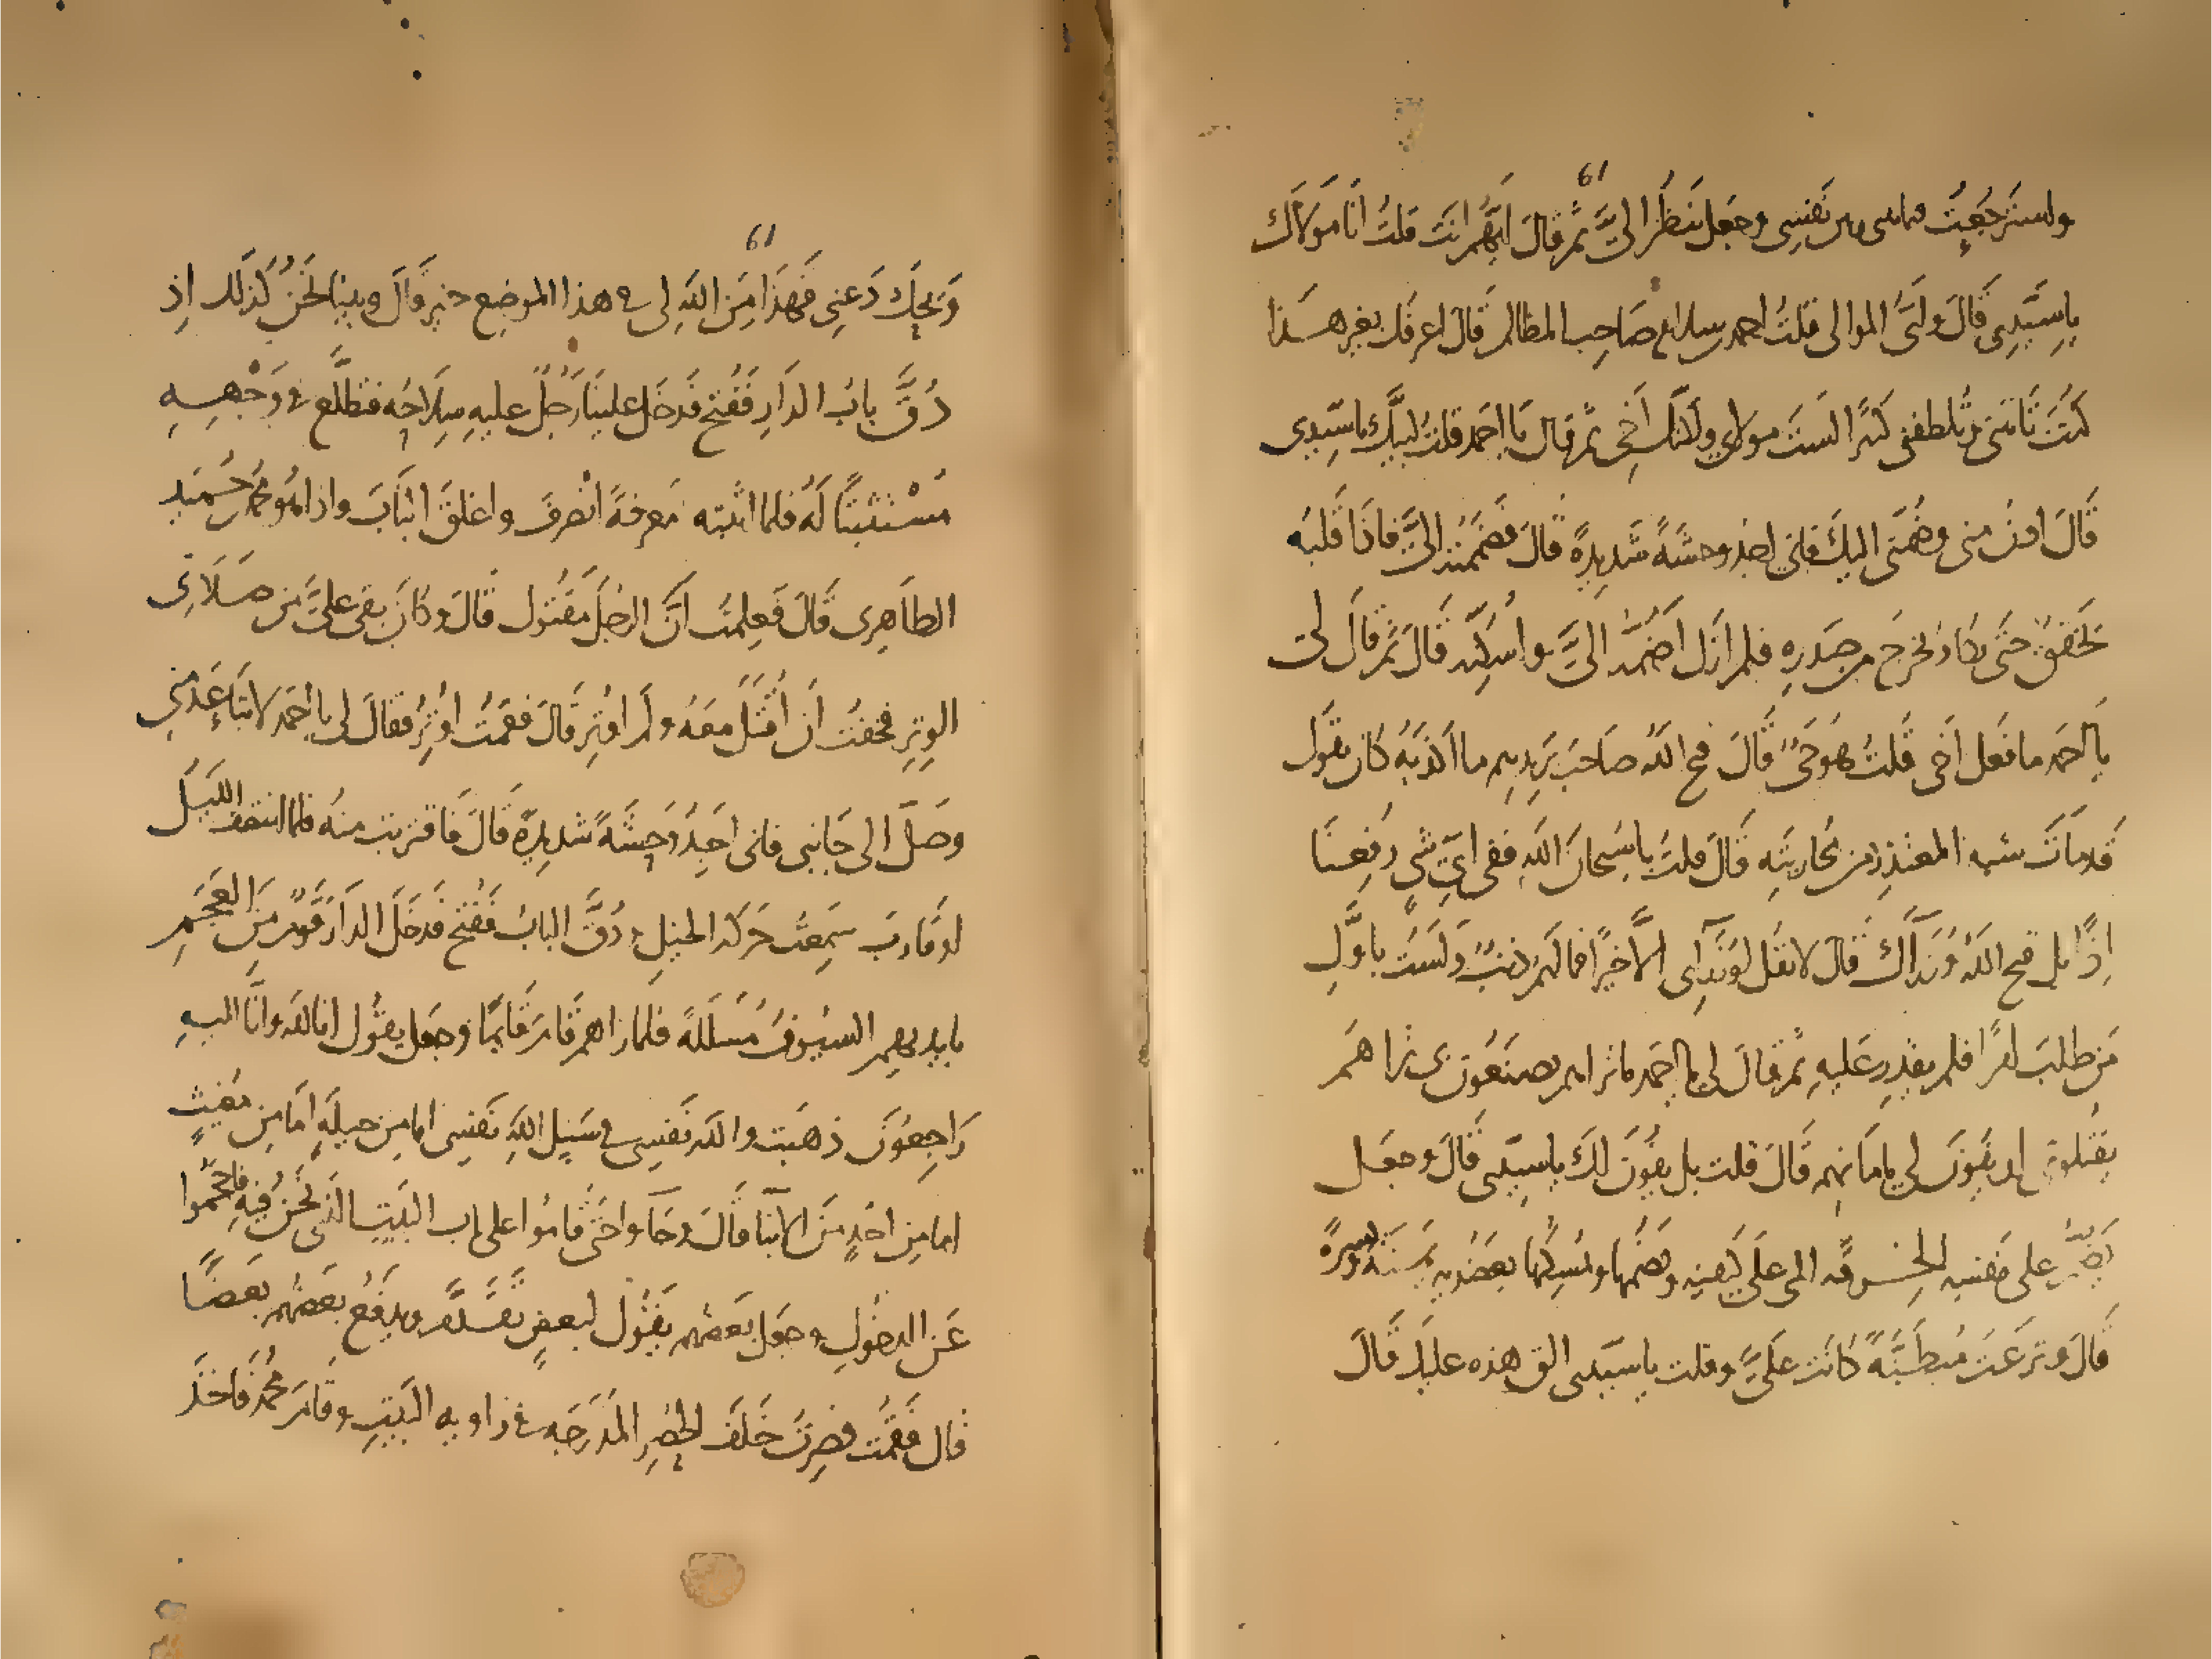 61
واسترجعت من نفسي وجعل ينظر الىَّ ثم قال ايهم انت قلت انا مولاك
يا سيدي قال واىّ الموالي قلت احمد بن سلام صاحب المظالم قال اعرفك بغير هذا
كنت تاتيني وتلطفني كثيرًا لست مولاي ولكنك اخي ثم قال يا احمد قلت لبيك يا سيدي
قال ادن مني وضمني اليك فاني اجد وحشة شديدة قال فضممته الىّ فاذا قلبه
يخفق حتى يكاد يخرج من صدره فلم ازل اضمه الىّ واسكنه قال ثم قال لي
يا احمد ما فعل اخي قلت هو حي قال قبح الله صاحب بريدهم ما اكذبه كان يقول
قد مات شبه المعتذر من محاربته قال قلت يا سبحان الله ففي اى شي رفعنا
اذًا بل قبح الله وزراك قال لا تقل لوزراى الا خيرًا فما لهم ذنب ولست باول
من طلب امرًا فلم يقدر عليه ثم قال لي يا احمد ما تراهم يصنعون بي تراهم
يقتلوني او يفون لي بامانهم قال قلت بل يفون لك يا سيدي قال وجعل
يضم على نفسه الخرقه التي على كتفيه ويضمها ويمسكها بعضديه يمنة ويسرة
قال ونزعت مبطنة كانت علىّ وقلت يا سيدي الق هذه عليك قال
61
ويحك دعني فهذا من الله لي في هذا الموضع خير قال وبينا نحن كذلك اذ
دُقّ باب الدار ففتح فدخل علينا رجل عليه سلاحه فتطلع في وجهه
مستثبتًا له فلما اثبته معرفة انصرف واغلق الباب واذا هو محمد بن حميد
الطاهري قال فعلمت ان الرجل مقتول قال وكان بقي علىّ من صلاتي
الوتر فخفت ان اقتل معه ولم اوتر قال فقمت اوتر فقال لي يا احمد لا تباعد مني
وصلّ الى جانبي فاني اجد وحشة شديدة قال فاقتربت منه فلما انتصف الليل
او قارب سمعت حركة الخيل ودُقّ الباب ففتح فدخل الدار قوم من العجم
بايديهم السيوف مسللة فلما راهم قام قايمًا وجعل يقول انا لله وانا اليه
راجعون ذهبت والله نفسي في سبيل الله نفسي اما من حيلة اما من مغيث
اما من احد من الابنا قال وجاوا حتى قاموا على باب البيت الذي نحن فيه فاحجموا
عن الدخول وجعل بعضهم يقول لبعض تقدم ويدفع بعضهم بعضًا
قال فقمت فصرت خلف الحصر المدرجه في زاويه البيت وقام محمد فاخذ